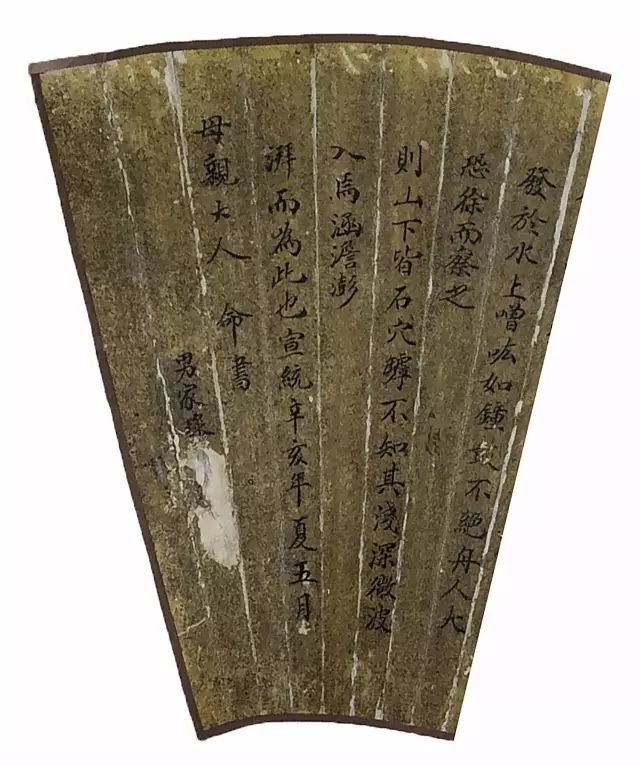 發於水上噌吰如鐘鼓不絕舟人大
恐徐而察之
則山下皆石穴罅不知其淺深微波
入焉涵澹澎
湃而為此也宣統辛亥年夏五月
母親大人 命書
男家